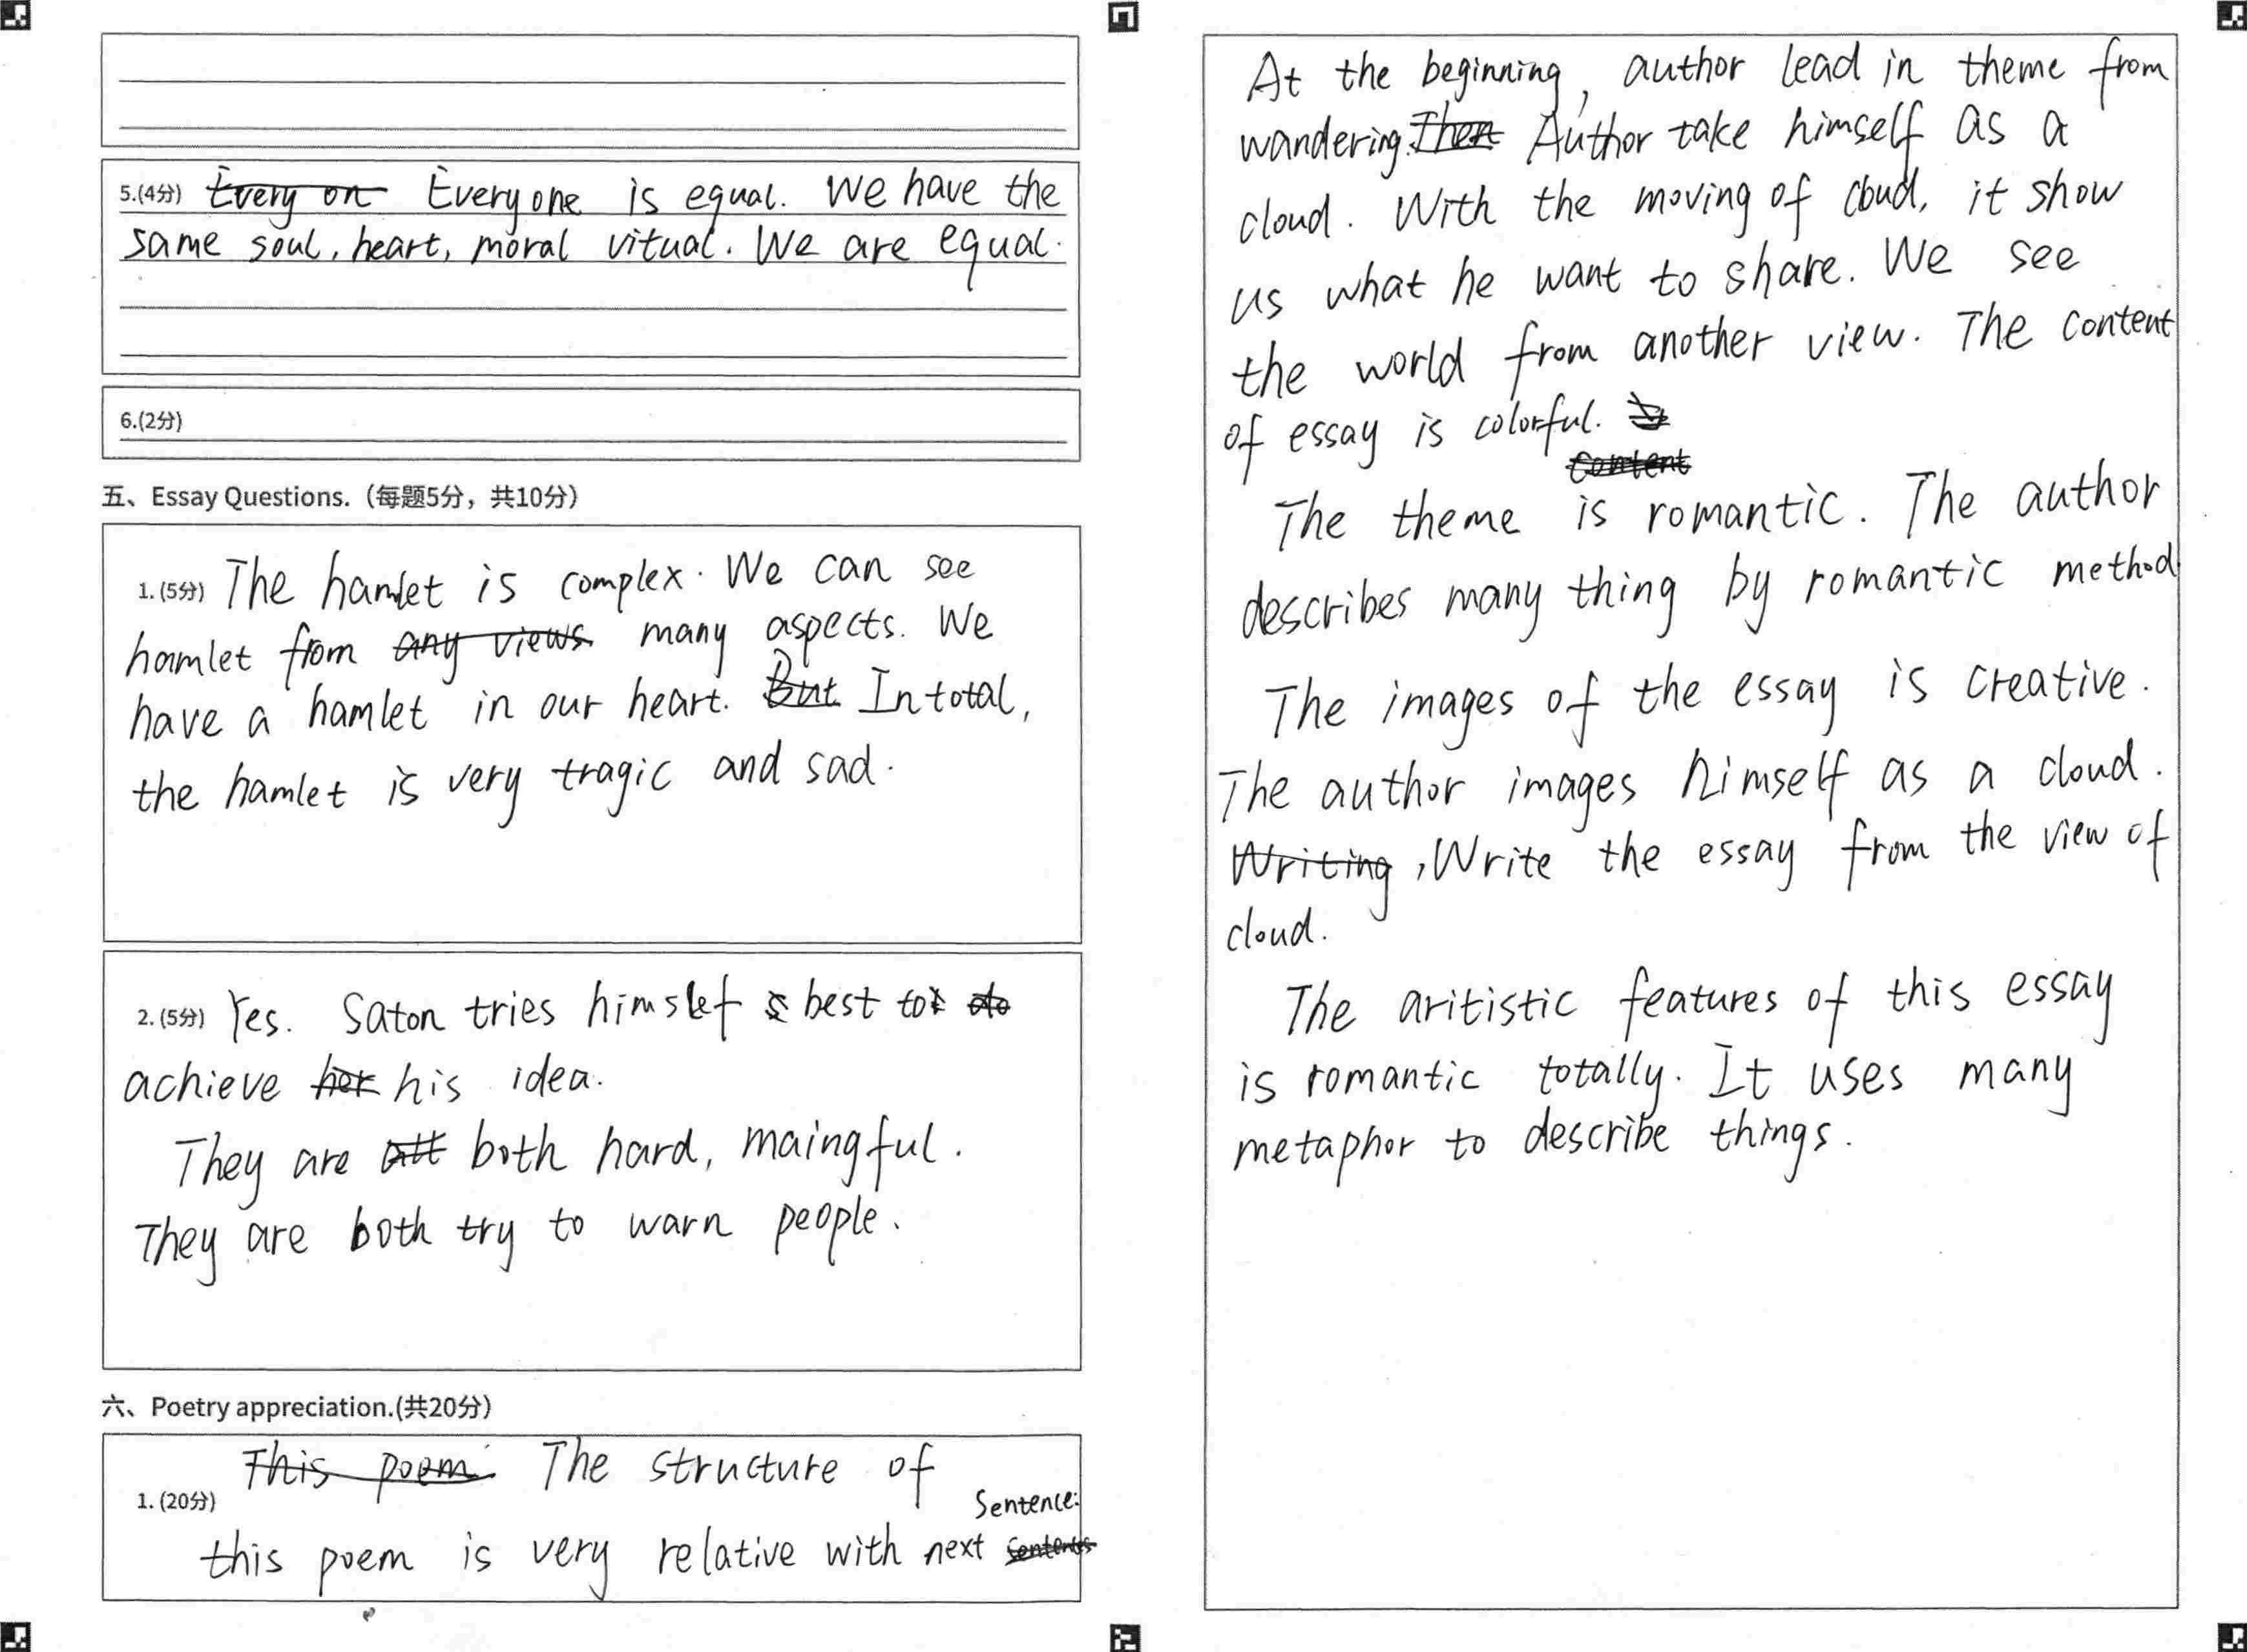 5.(4分) Every on Everyone is equal. We have the
same soul, heart, moral vitual. We are equal.
6.(2分)
五、Essay Questions.（每题5分，共10分）
1. (5分) The hamlet is complex. We can see
hamlet from any views many aspects. We
have a hamlet in our heart. But In total,
the hamlet is very tragic and sad.
2. (5分) Yes. Saton tries himslef best to do
achieve her his idea.
They are all both hard, maingful.
They are both try to warn people.
六、Poetry appreciation.(共20分)
This poem The structure of
1. (20分)
Sentence:
this poem is very relative with next
At the beginning, author lead in theme from
wandering. Then Author take himself as a
cloud. With the moving of cloud, it show
us what he want to share. We see
the world from another view. The content
of essay is colorful.
content
The theme is romantic. The author
describes many thing by romantic method
The images of the essay is creative.
The author images himself as a cloud.
Writing , Write the essay from the view of
cloud.
The aritistic features of this essay
is romantic totally. It uses many
metaphor to describe things.